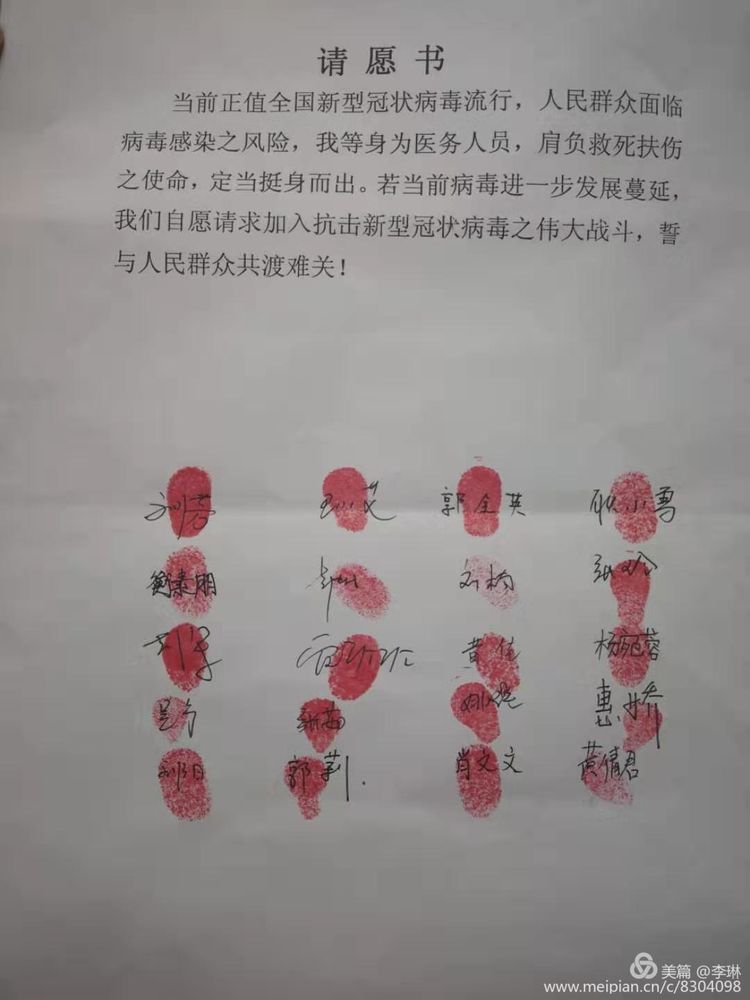 请愿书
当前正值全国新型冠状病毒流行，人民群众面临
病毒感染之风险，我等身为医务人员，肩负救死扶伤
之使命，定当挺身而出。若当前病毒进一步发展蔓延，
我们自愿请求加入抗击新型冠状病毒之伟大战斗，誓
与人民群众共渡难关！
刘芳 郭全英 耿小勇
衡素朋 石楠
黄佳 杨宛蓉
靳茹 惠娇
刘阳 郭莉. 肖文文 黄倩君
美篇 @李琳
www.meipian.cn/c/8304098